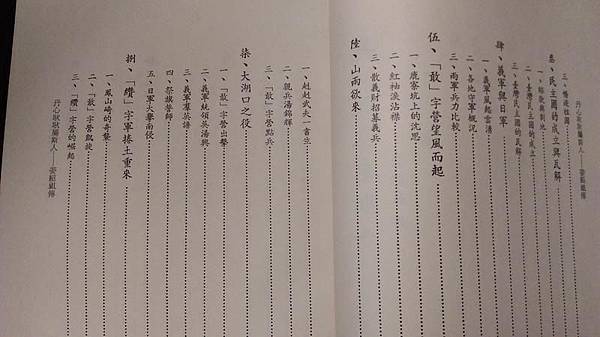 丹心耿耿屬斯人——姜紹祖傳
三、鳴遠桂園
叁、民主國的成立與瓦解
一、臺灣民主國的成立
三、臺灣民主國的瓦解
肆、義軍與日軍
一、義軍風起雲湧
二、各地官軍概況
三、兩軍兵力比較
伍、「敢」字營望風而起
一、鹿寮坑上的沈思
二、紅袖淚沾襟
三、散義財招募義兵
陸、山雨欲來
一、赳赳武夫一書生
二、親兵湯錦輝
三、「敢」字營點兵
柒、大湖口之役
一、「敢」字營出擊
二、義軍統領吳湯興
三、義軍羣英譜
四、祭旗誓師
五、日軍大舉南侵
捌、「纘」字軍捲土重來
一、鳳山崎的奇擊
二、「敢」字營凱旋
三、「纘」字營的崛起
丹心耿耿屬斯人——姜紹祖傳